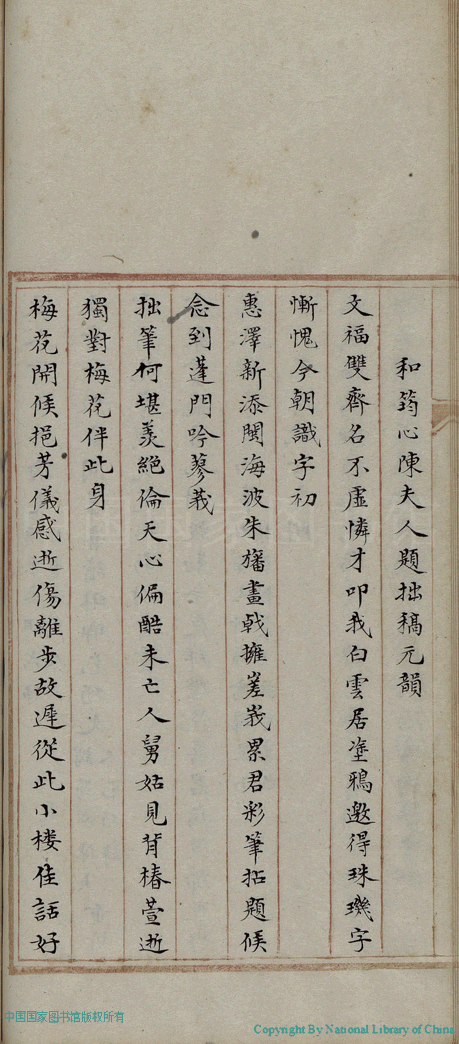 和筠心陳夫人題拙稿元韻
文福雙齊名不虛憐才叩我白雲居塗鴉邀得珠璣字
慚愧今朝識字初
惠澤新添閩海波朱旛畫戟擁嵳峩累君彩筆拈題候
念到蓬門吟蓼莪
拙筆何堪羨絶倫天心偏酷未亡人舅姑見背椿萱逝
獨對梅花伴此身
梅花開候挹芳儀感逝傷離步故遲從此小樓佳話好
中国国家图书馆版权所有
Copyright By National Library of China